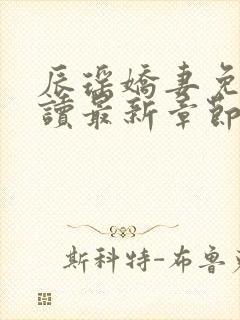 辰瑶嬌妻免
讀最新章節
斯科特-布魯